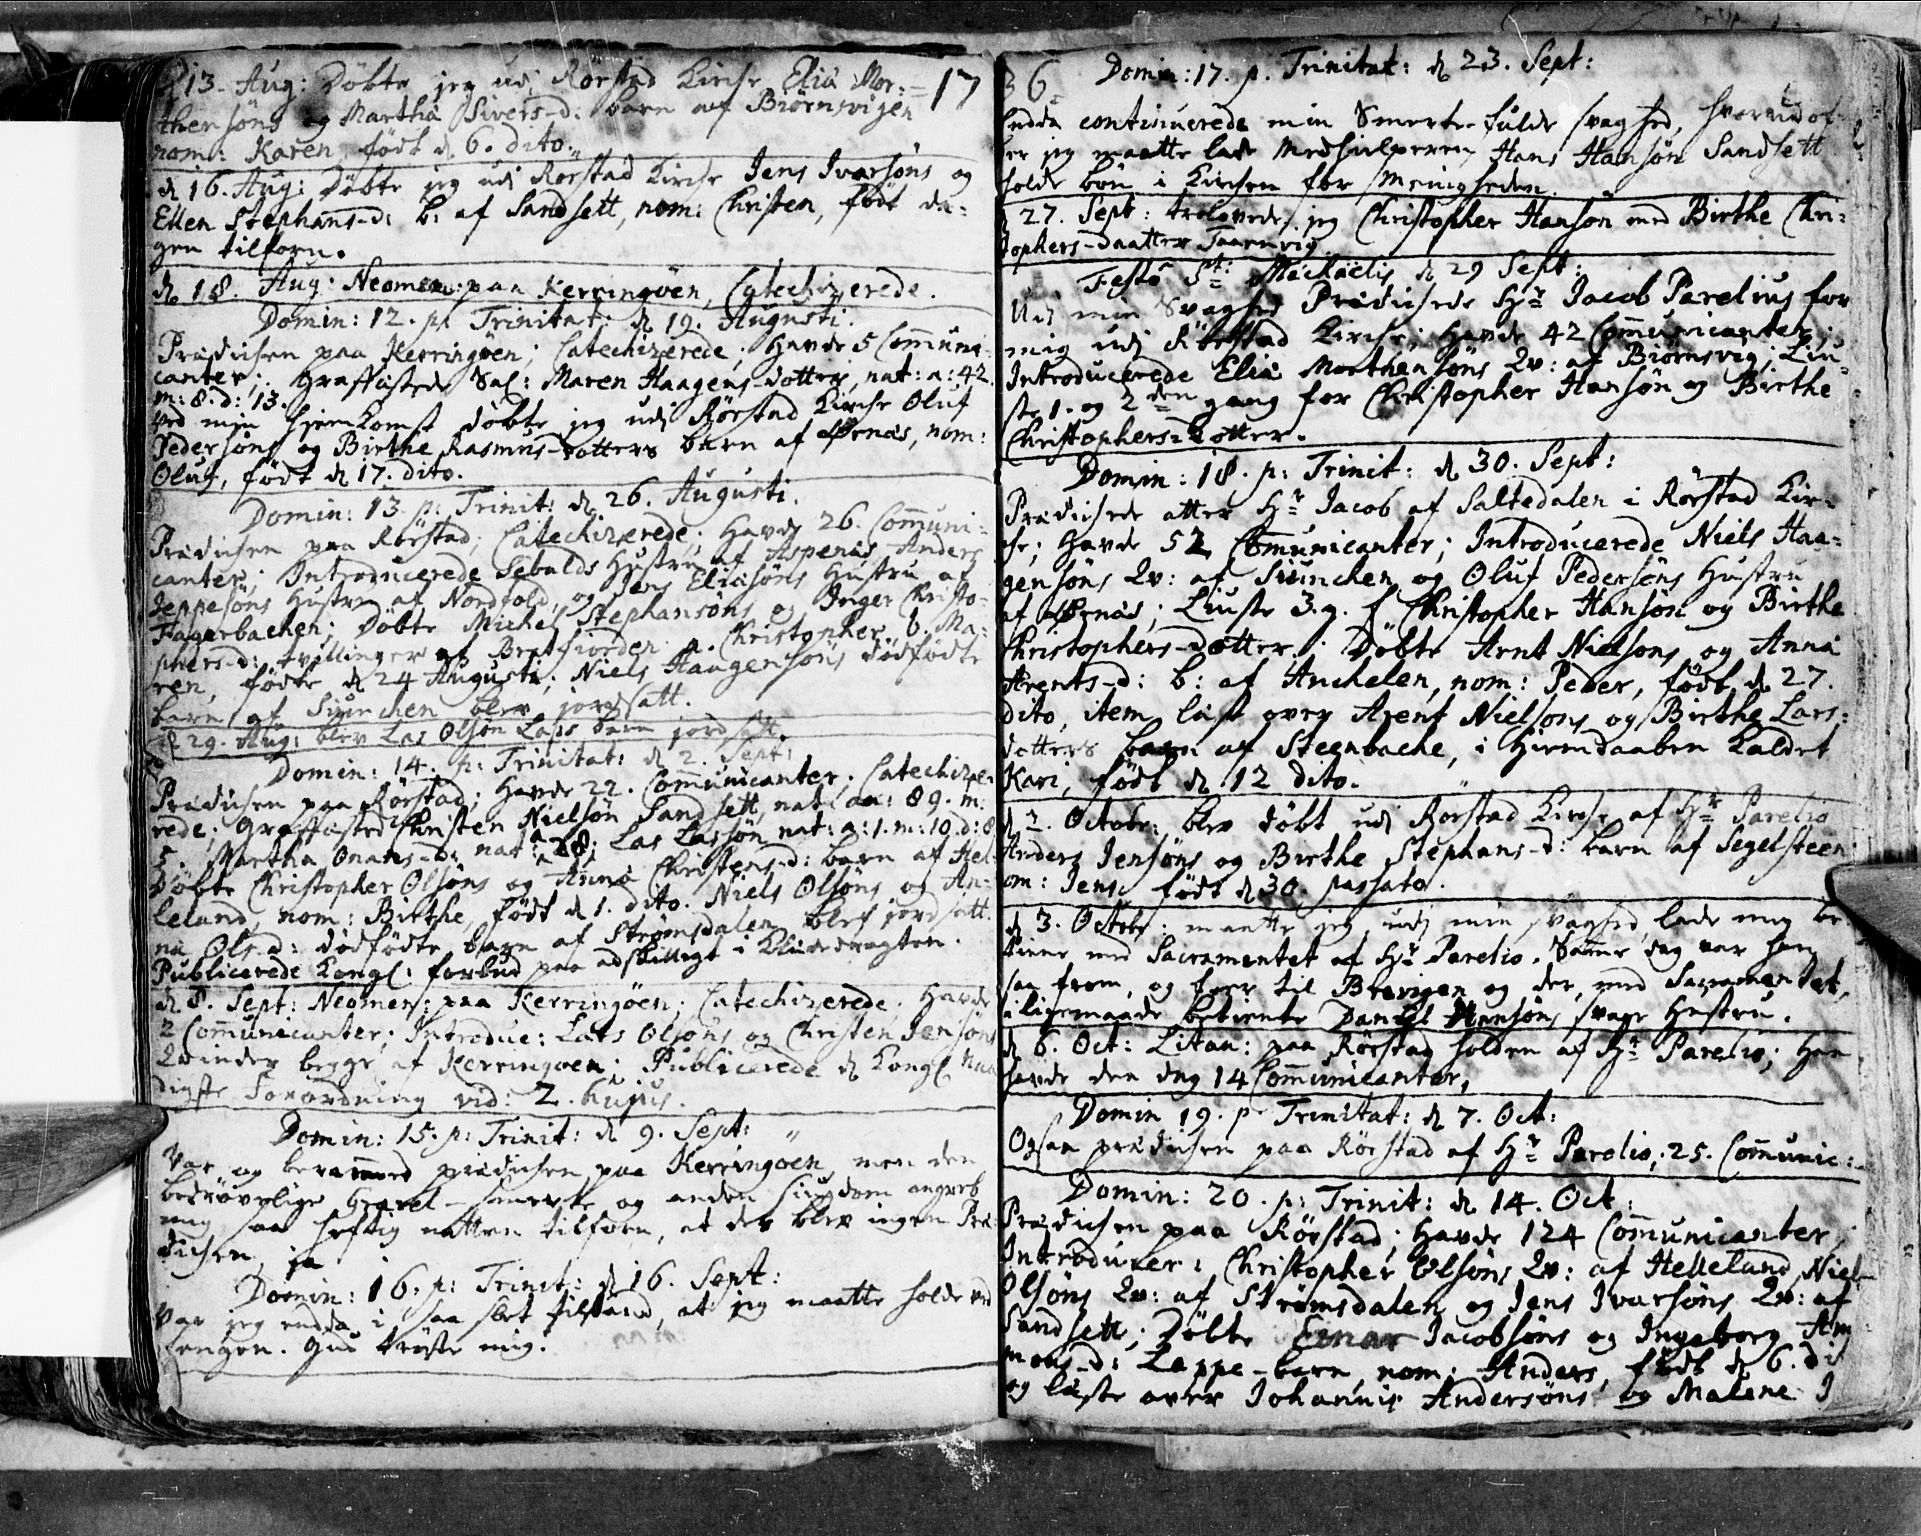 d 13. Aug: Døbte jeg udj Rørstad Kirche Eliæ Mor: = 17
thensøns og Martha Sivers-d: barn af Biørnsvigen
nom: Karen, født d 6. dito.
d 16. Aug: Døbte jeg udj Rørstad Kirche Jens Ivarsøns og
Ellen Stephans-d: b: af Sandsett, nom: Christen, født da-
gen tilforn.
d 18. Aug: Neomen: paa Kerringøen, Catechizerede.
Domin: 12. p: Trinitat: d 19. Augusti.
Prædichen paa Kerringøen; Catechizerede; Havde 5 Communi-
canter; Graffæstede Sal: Maren Haagens-dotter, nat: a: 42.
m: 8. d: 13.
Ved min Hjemkomst døbte jeg udj Rørstad Kirche Oluf
Pedersøns og Birthe Rasmus-dotters barn af Ørnæs, nom:
Oluf, født d 17. dito.
Domin: 13. p: Trinit: d 26. Augusti.
Prædichen paa Rørstad; Catechizerede; Havde 26. Communi-
canter; Introducerede Sebalds Hustru af Aspenæs, Anders
Jeppesøns Hustru af Nordfold, og Jens Eliæsøns Hustru af
Fagerbachen; Døbte Michel Stephansøns og Inger Christo-
phers-d: tvillinger af Bratfiorden a. Christopher b. Ma-
ren, fødte d 24 Augusti; Niels Haagensøns dødfødte
barn af Siunchen blev jordsatt.
d 29. Aug: blev Las Olsøn Laps barn jordsatt.
Domin: 14. p: Trinitat: d 2. Sept:
Prædichen paa Rørstad; Havde 22. Communicanter. Catechize-
rede; Graffæsted Christen Nielsøn Sandsett, nat: an: 89. m:
5. Martha Onans-d: nat: a 28; Las Lassøn nat: a: 1. m: 10. d: 8
Døbte Christopher Olsøns og Anna Christens-d: barn af Hel-
leland, nom: Birthe, født d 1. dito. Niels Olsøns og An-
na Ols-d: dødfødte barn af Strømsdalen blef jordsatt.
Publicerede Kongl: forbud paa adskilligt i Klædedragten.
d 8. Sept: Neomen: paa Kerringøen; Catechizerede; Havde
2 Communicanter; Introduc: Lars Olsøns og Christen Jensøns
Qvinder begge af Kerringøen; Publicerede d Kongl Naa-
digste Forordning vid: 2. hujus.
Domin: 15. p: Trinit: d 9. Sept:
Var og berammed prædichen paa Kerringøen, men den
bedrøvelige Gravel-smerte og anden siugdom angreb
mig saa heftig natten tilforn, at der blev ingen Præ-
dichen, ja
Domin: 16. p: Trinit: d 16. Sept:
Var jeg endda i saa slet tilstand, at jeg maatte holde ved
sengen. Gud trøste mig.
36
Domin: 17. p. Trinitat: d 23. Sept:
Endda continuerede min Smerte-fulde svaghed,
jeg maatte lade Medhielperen Hans Hansøn Sandsett
holde bøn i Kirchen for Menigheden.
d 27. Sept: trolovede jeg Christopher Hansøn med Birthe Chri-
tophers-daatter Taarnvig
Festo St: Michaelis d 29 Sept:
Udj min Svaghed Prædichede Hr Jacob Parelius for
mig udj Rørstad Kirche; Havde 42 Communicanter;
Introducerede Eliæ Morthensøns Qv: af Biørnsvig; Liu-
ste 1. og 2den gang for Christopher Hansøn og Birthe
Christophers-dotter.
Domin: 18. p: Trinit: d 30. Sept:
Prædichede atter Hr Jacob af Saltedalen i Rørstad Kir-
che; Havde 52 Communicanter; Introducerede Niels Haa-
gensøns Qv: af Siunchen og Oluf Pedersøns Hustru
af Ørnæs; Liuste 3. g. f Christopher Hansøn og Birthe
Christophers-dotter; Døbte Arnt Nielsøns og Anna
Arents-d: b: af Anchelen, nom: Peder, født d 27.
dito, item læst over Arent Nielsøns og Birthe Lars-
dotters barn af Steenbache, i Hiemdaaben Kaldet
Kari, født d 12 dito.
d 2. Octobr: blev døbt udj Rørstad Kirche af Hr Parelio
Anders Jensøns og Birthe Stephans-d: barn af Segelsteen
om: Jens, født d 30. passato.
d 3. Octobr: maatte jeg udj min svaghed lade mig be-
tiene med Sacramentet af Hr Parelio. Samme dag var han
saa from, og foer til Brevigen og der, med Sacramentet,
iligemaade betiente Daniel Hansøns svage Hustru.
d 6. Oct: Litan: paa Rørstad holden af Hr Parelio; Han
havde den dag 14 Communicanter,
Domin 19. p Trinitat: d 7. Oct:
Ogsaa prædichen paa Rørstad af Hr Parelio; 25. Communic:
Domin: 20. p: Trinit: d 14. Oct:
Prædichen paa Rørstad; Havde 124 Communicanter;
Introducer: Christopher Olsøns Qv: af Helleland, Niel
Olsøns Qv: af Strømsdalen og Jens Ivarsøns Qv: af
Sandsett; Døbte Einar Jacobsøns og Ingeborg Am
mons-d: Lappe-barn, nom: Anders, født d 6. di
og læste over Johannis Andersøns og Malene J